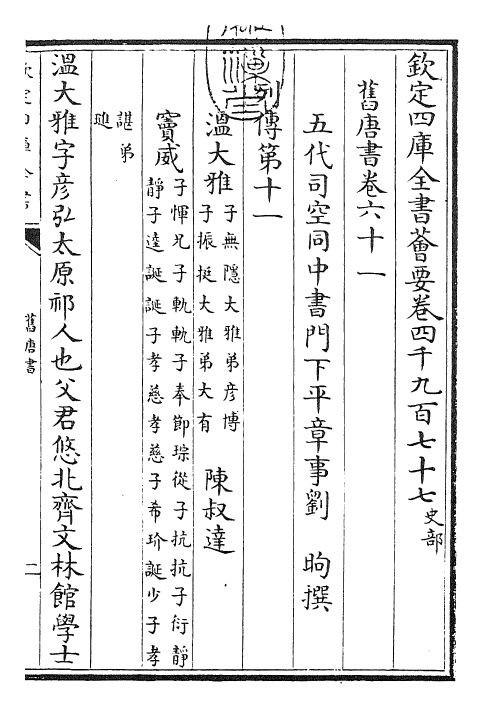 欽定四庫全書薈要卷四千九百七十七史部
舊唐書卷六十一
五代司空同中書門下平章事劉 昫撰
列傳第十一
溫大雅 子無隱大雅弟彥博
子振挺大雅弟大有 陳叔達
竇威 子惲兄子軌軌子奉節琮從子抗抗子衍靜
靜子逵誕誕子孝慈孝慈子希玠誕少子孝
諶弟
璡
溫大雅字彥弘太原祁人也父君悠北齊文林館學士
欽定四庫全書
舊唐書